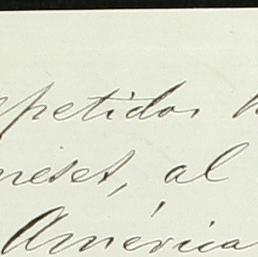 petidos
meses, al
América